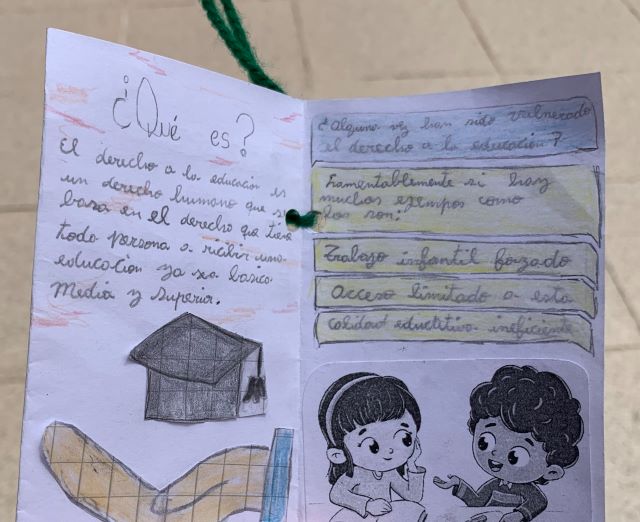 ¿Qué es?
El derecho a la educación es
un derecho humano que se
basa en el derecho que tiene
toda persona a ricibir una
educación ya sea basica
Media y Superia.
¿Alguna vez han sido vulnerado
el derecho a la educación?
Lamentablemente si hay
muchos ejempos como
los son:
Trabajo infantil forzado
Acceso limitado a esta
calidad eductitiva ineficiente